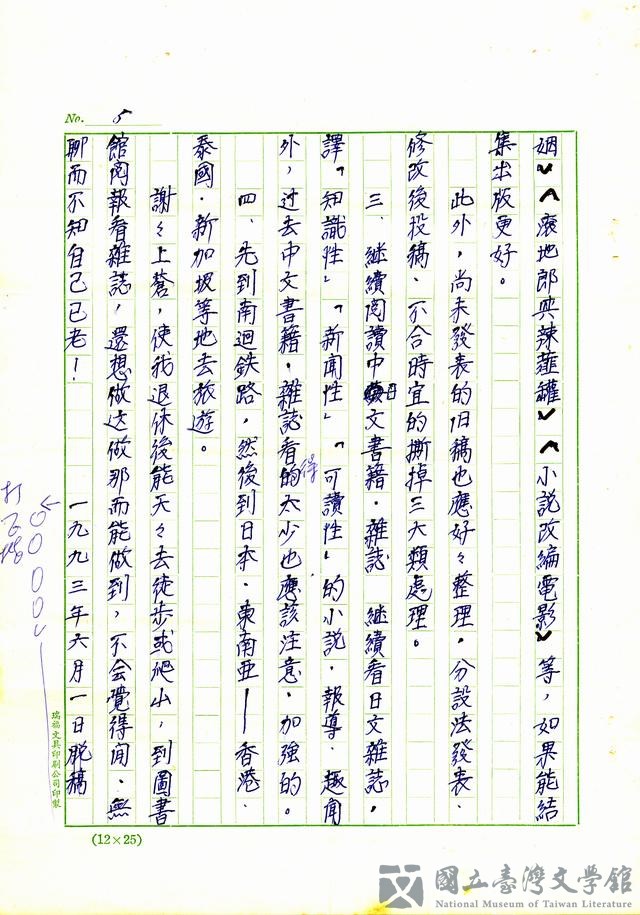 No. 5
姻》《滾地郎與辣薤罐》《小說改編電影》等，如果能結
集出版更好。
此外，尚未發表的旧稿也應好々整理，分設法發表、
修改後投稿、不合時宜的撕掉三大類處理。
三、繼續閱讀中日文書籍、雜誌，繼續看日文雜誌，
譯「知識性」「新聞性」「可讀性」的小說、報導、趣聞
外，过去中文書籍、雜誌看得太少也應該注意、加強的。
四、先到南迴鉄路，然後到日本、東南亜——香港、
泰國、新加坡等地去旅遊。
謝々上蒼，使我退休後能天々去徒步或爬山，到圖書
館閱報看雜誌，還想做这做那而能做到，不会覺得閒、無
聊而不知自己已老！
一九九三年六月一日脫稿
瑞福文具印刷公司印製
(12×25)
國立臺灣文學館
National Museum of Taiwan Literature